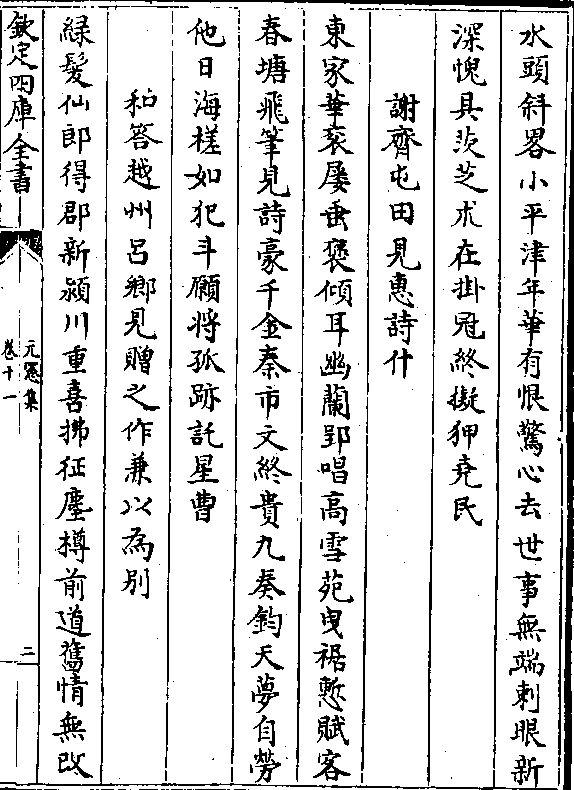 水頭斜畧小平津年華有恨驚心去世事無端刺眼新
深愧具茨芝朮在掛冠終擬狎堯民
謝齊屯田見惠詩什
東家華衮屡垂褒傾耳幽蘭郢唱高雪苑曳裾慙賦客
春塘飛筆見詩豪千金秦市文終貴九奏鈞天夢自勞
他日海槎如犯斗願将孤跡託星曹
和答越州吕鄉見贈之作兼以為别
緑髪仙郎得郡新潁川重喜拂征塵樽前道舊情無改
欽定四庫全書
元憲集
卷十一
二